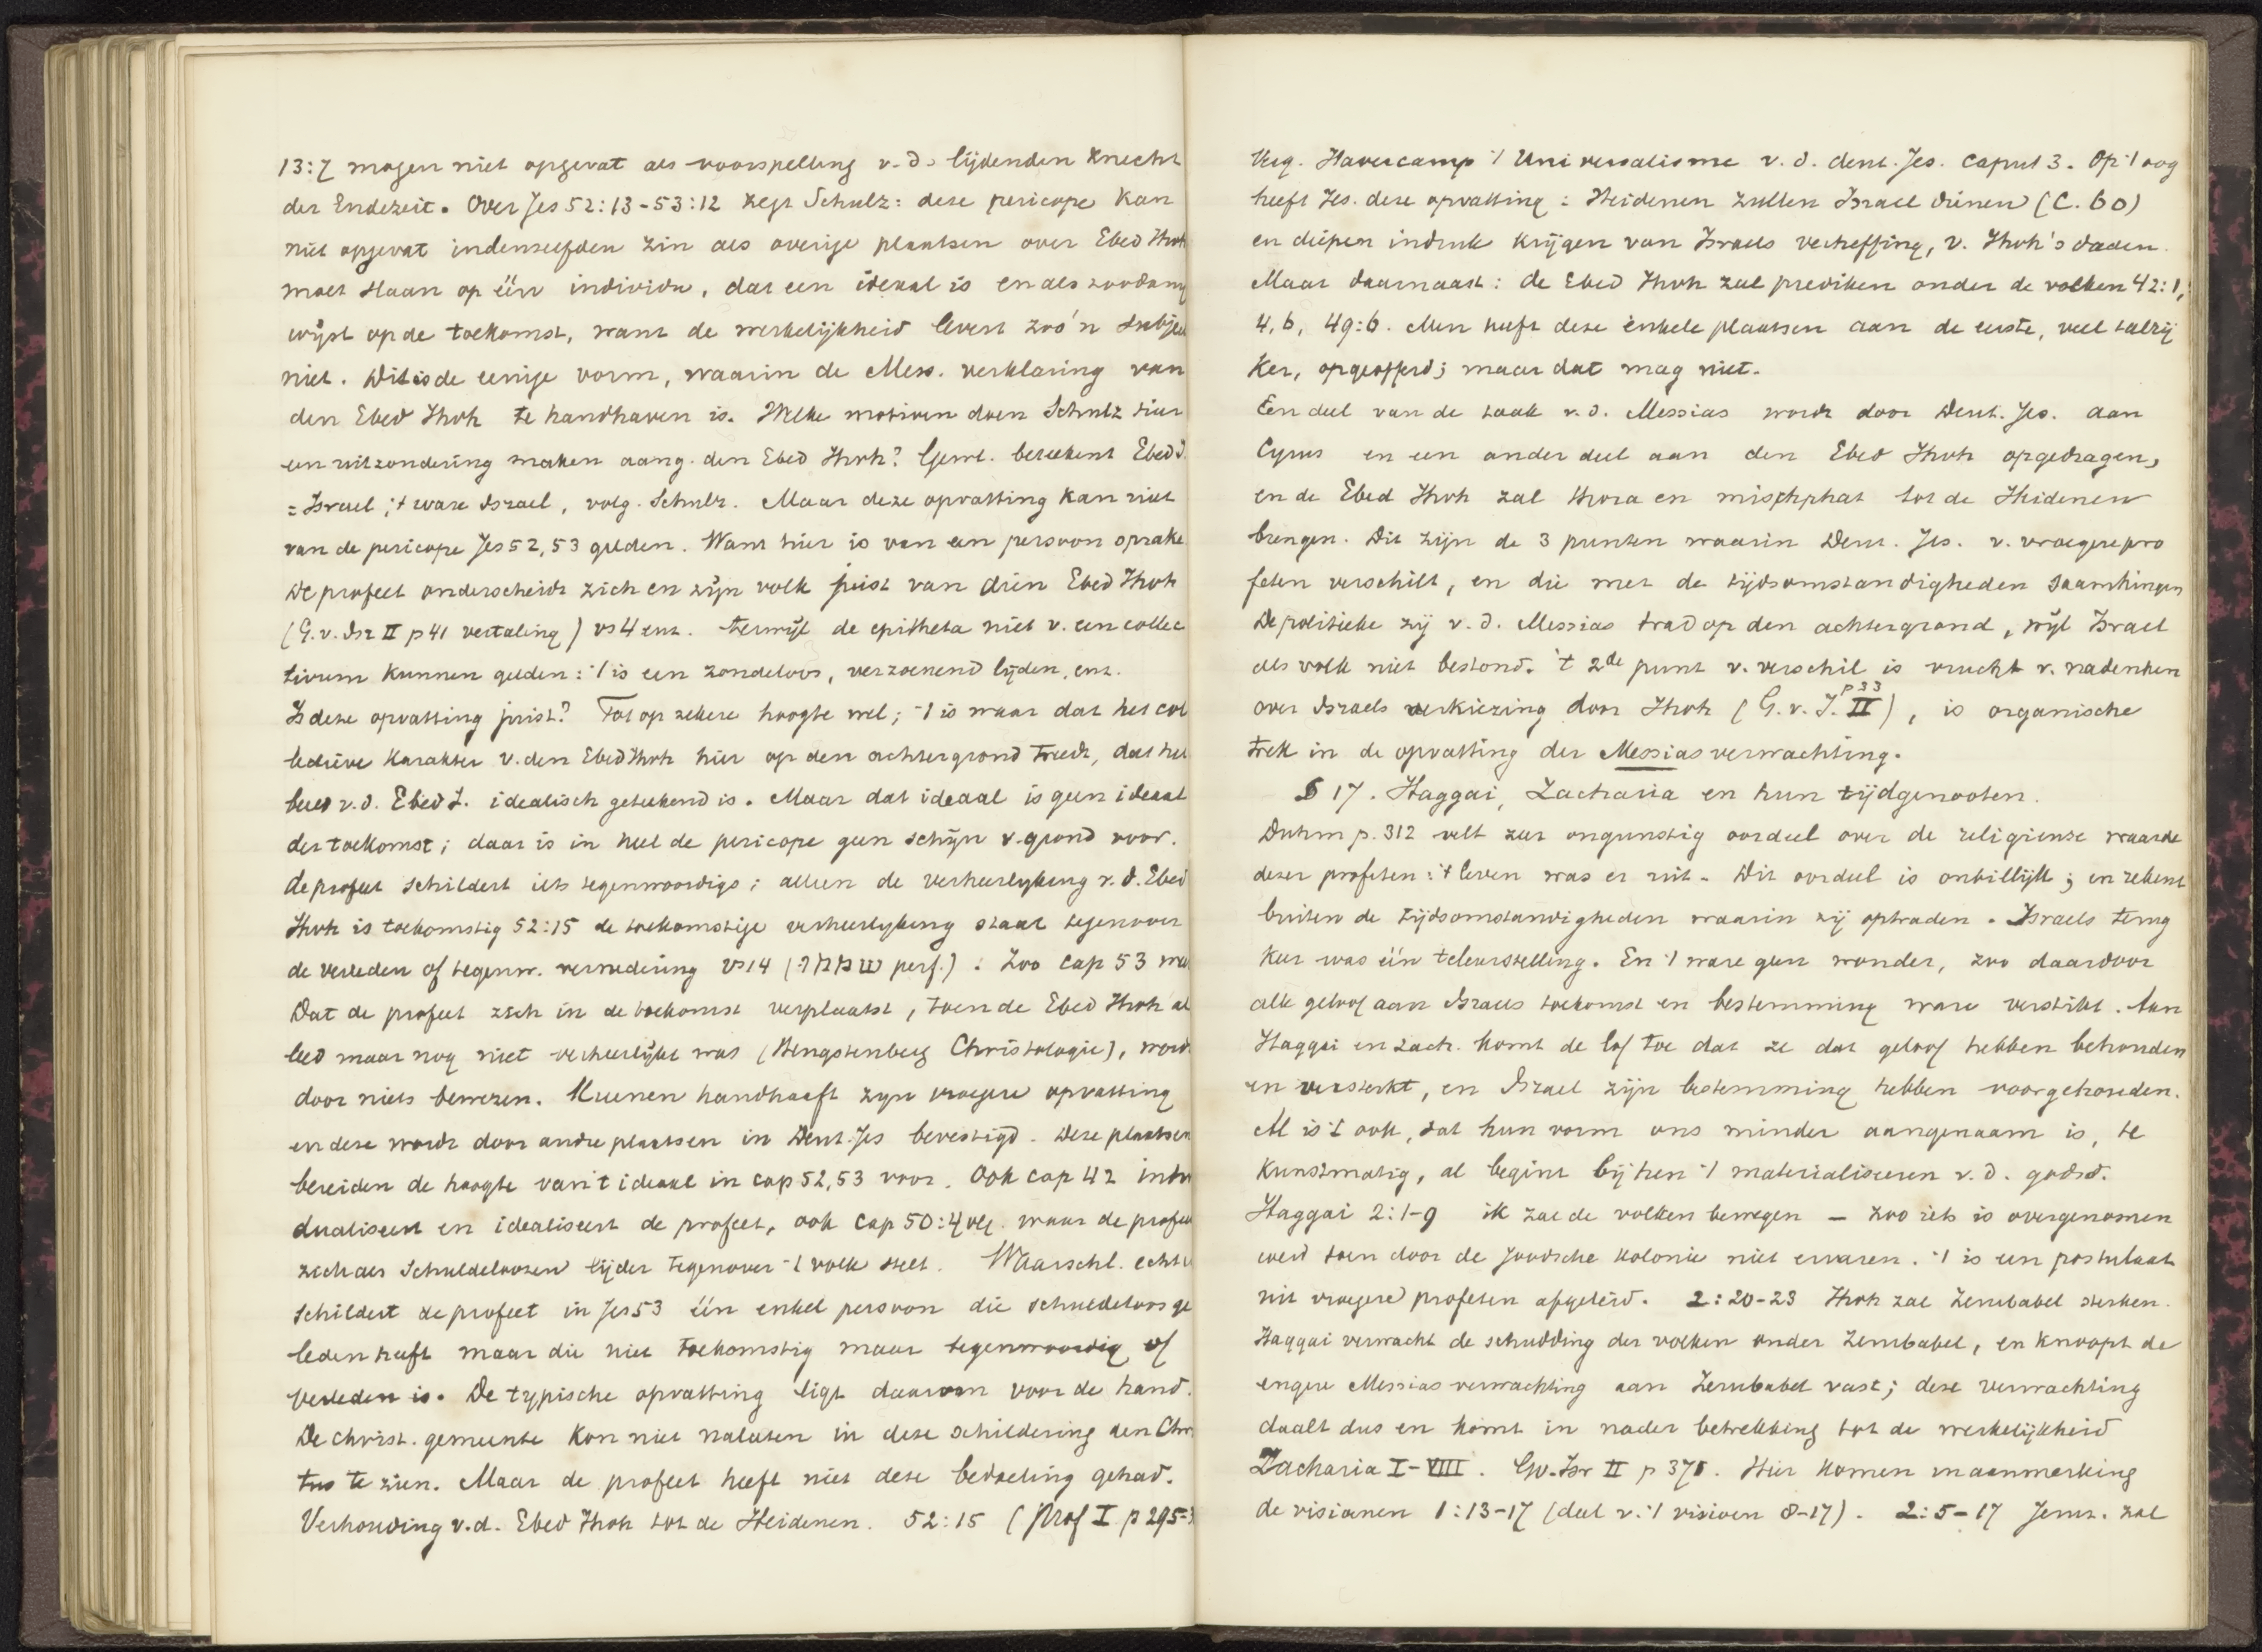 13:7 mogen niet opgevat als voorspelling v. d. lijdenden Knecht
der Endezeit. Over Jes 52:13-53:12 zegt Schulz: deze pericope kan
niet opgevat indenzelfden zin als overige plaatsen over Ebed Jhvh
moet slaan op één individu, dat een ideaal is en als zoodanig
wijst op de toekomst, want de werkelijkheid levert zoo'n subjec
niet. Dit is de eenige vorm, waarin de Mess. verklaring van
den Ebed Jhvh te handhaven is. Welke motiven doen Schulz hier
een uitzondering maken aang. den Ebed Jhvh? Gewl. beteekent Ebed J.
= Israel; 't ware Israel, volg. Schulz. Maar deze opvatting kan niet
van de pericope Jes 52, 53 gelden. Want hier is van een persoon sprake
De profeet onderscheidt zich en zijn volk juist van dien Ebed Jhvh
(G. v. Isr II p 41 vertaling) vs 4 enz. terwijl de epitheta niet v. een collec
tivum kunnen gelden: 't is een zondeloos, verzoenend lijden, enz.
Is deze opvatting juist? Tot op zekere hoogte wel; 't is waar dat het col
lectieve karakter v. den Ebed Jhvh hier op den achtergrond treedt, dat het
beeld v. d. Ebed J. idealisch geteekend is. Maar dat ideaal is geen ideaal
der toekomst; daar is in heel de pericope geen schijn v. grond voor.
De profeet schildert iets tegenwoordigs; alleen de verheerlyking v. d. Ebed
Jhvh is toekomstig 52:15 de toekomstige verheerlyking staat tegenover
de verleden of tegenw. vernedering vs 14 (שממו perf.). Zoo cap 53
Dat de profeet zich in de toekomst verplaatst, toen de Ebed Jhvh al
leed maar nog niet verheerlijkt was (Hengstenberg Christologie), wordt
door niets bewezen. Kuenen handhaaft zyn vroegere opvatting
en deze wordt door andre plaatsen in Deut. Jes bevestigd. Deze plaatsen
bereiden de hoogte van 't ideaal in cap 52, 53 voor. Ook cap 42 indivi
dualiseert en idealiseert de profeet, ook cap 50:4 vlg. waar de profeet
zich als schuldeloozen lijder tegenover 't volk stelt. Waarschl. echter
schildert de profeet in Jes 53 één enkel persoon die schuldeloos ge
leden heeft maar die niet toekomstig maar tegenwoordig of
verleden is. De typische opvatting ligt daarom voor de hand.
De christ. gemeente kon niet nalaten in deze schildering den Chris
tus te zien. Maar de profeet heeft niet deze bedoeling gehad.
Verhouding v. d. Ebed Jhvh tot de Heidenen. 52:15 (Prof I p 295-
Verg. Havercamp 't Universalisme v. d. deut. Jes. caput 3. Op 't oog
heeft Jes. deze opvatting: Heidenen zullen Israel dienen (C. 60)
en diepen indruk krijgen van Israels verheffing, v. Jhvh's daden.
Maar daarnaast: de Ebed Jhvh zal prediken onder de volken 42:1,
4, 6, 49:6. Men heeft deze enkele plaatsen aan de eerste, veel talrij
ker, opgeofferd; maar dat mag niet.
Een deel van de taak v. d. Messias wordt door Deut. Jes. aan
Cyrus en een ander deel aan den Ebed Jhvh opgedragen,
en de Ebed Jhvh zal thora en mischphat tot de Heidenen
brengen. Dit zijn de 3 punten waarin Deut. Jes. v. vroegere pro
feten verschilt, en die met de tijdsomstandigheden saamhingen
De politieke zij v. d. Messias trad op den achtergrond, wijl Israel
als volk niet bestond. 't 2de punt v. verschil is vrucht v. nadenken
over Israels verkiezing door Jhvh (G. v. I. II p 33), is organische
trek in de opvatting der Messiasverwachting.
§ 17. Haggai, Zacharia en hun tijdgenooten.
Duhm p. 312 velt zeer ongunstig oordeel over de religieuse waarde
dezer profeten: 't leven was er uit. Dit oordeel is onbillijk; en rekent
buiten de tijdsomstandigheden waarin zij optraden. Israels terug
keer was één teleurstelling. En 't ware geen wonder, zoo daardoor
alle geloof aan Israels toekomst en bestemming ware verstikt. Aan
Haggai en Zach. komt de lof toe dat ze dat geloof hebben behouden
en versterkt, en Israel zijn bestemming hebben voorgehouden.
Al is 't ook, dat hun vorm ons minder aangenaam is, te
kunstmatig, al begint bij hen 't materialiseeren v. d. godsd.
Haggai 2:1-9 ik zal de volken bewegen — zoo iets is overgenomen
werd toen door de Joodsche kolonie niet ervaren. 't is een postulaat
uit vroegere profeten afgeleid. 2:20-23 Jhvh zal Zerubabel sterken.
Haggai verwacht de schudding der volken onder Zerubabel, en knoopt de
engere Messiasverwachting aan Zerubabel vast; deze verwachting
daalt dus en komt in nader betrekking tot de werkelijkheid
Zacharia I-VIII. Gv. Isr II p 378. Hier komen in aanmerking
de visioenen 1:13-17 (deel v. 't visioen 8-17). 2:5-17 Jeruz. zal